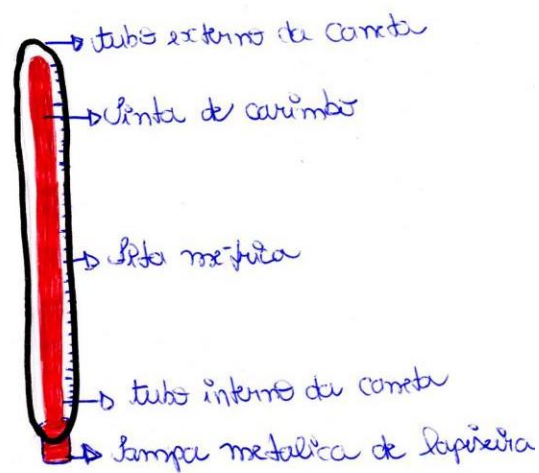 tubo externo da caneta
Tinta de carimbo
fita métrica
tubo interno da caneta
Tampa metalica de lapiseira